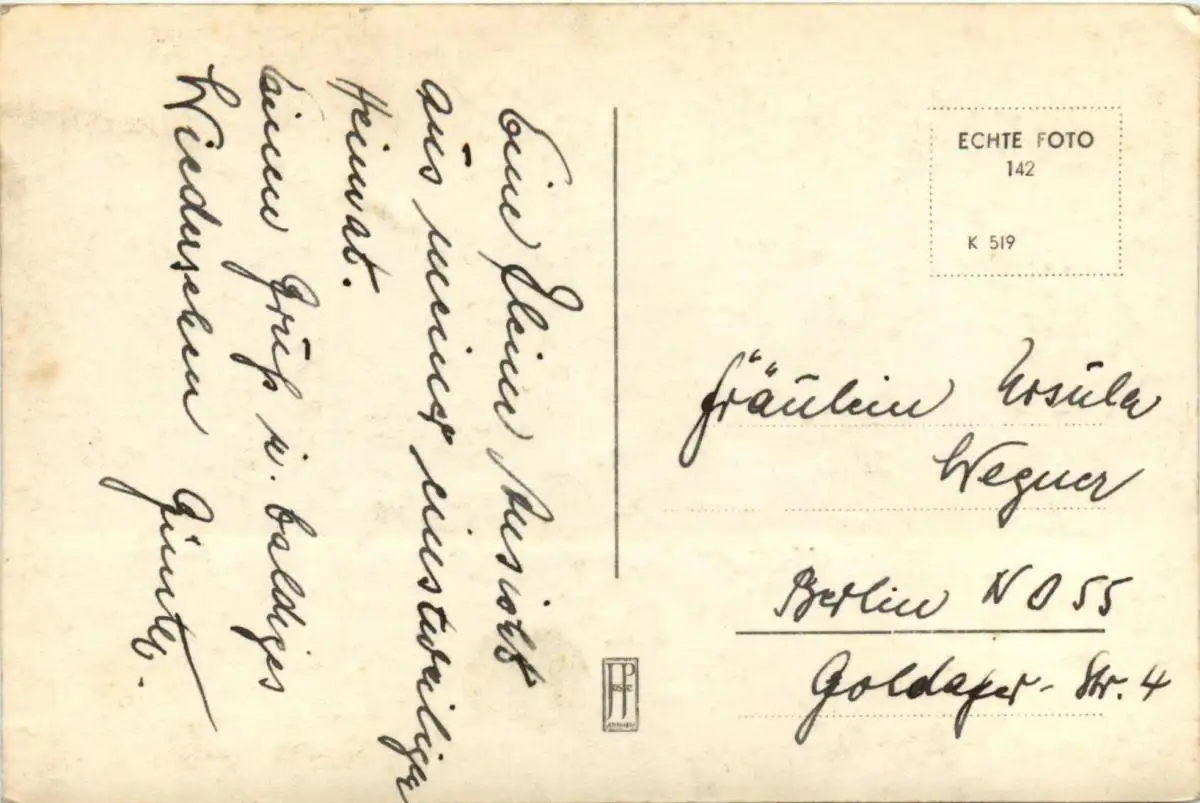 Eine kleine Ansicht
aus meiner einstweiligen
Heimat.
Einen Gruß u. baldiges
Wiedersehen Günter.
ECHTE FOTO
142
K 519
Fräulein Ursula
Wegner
Berlin NO 55
Goldaper-Str. 4
JosPé